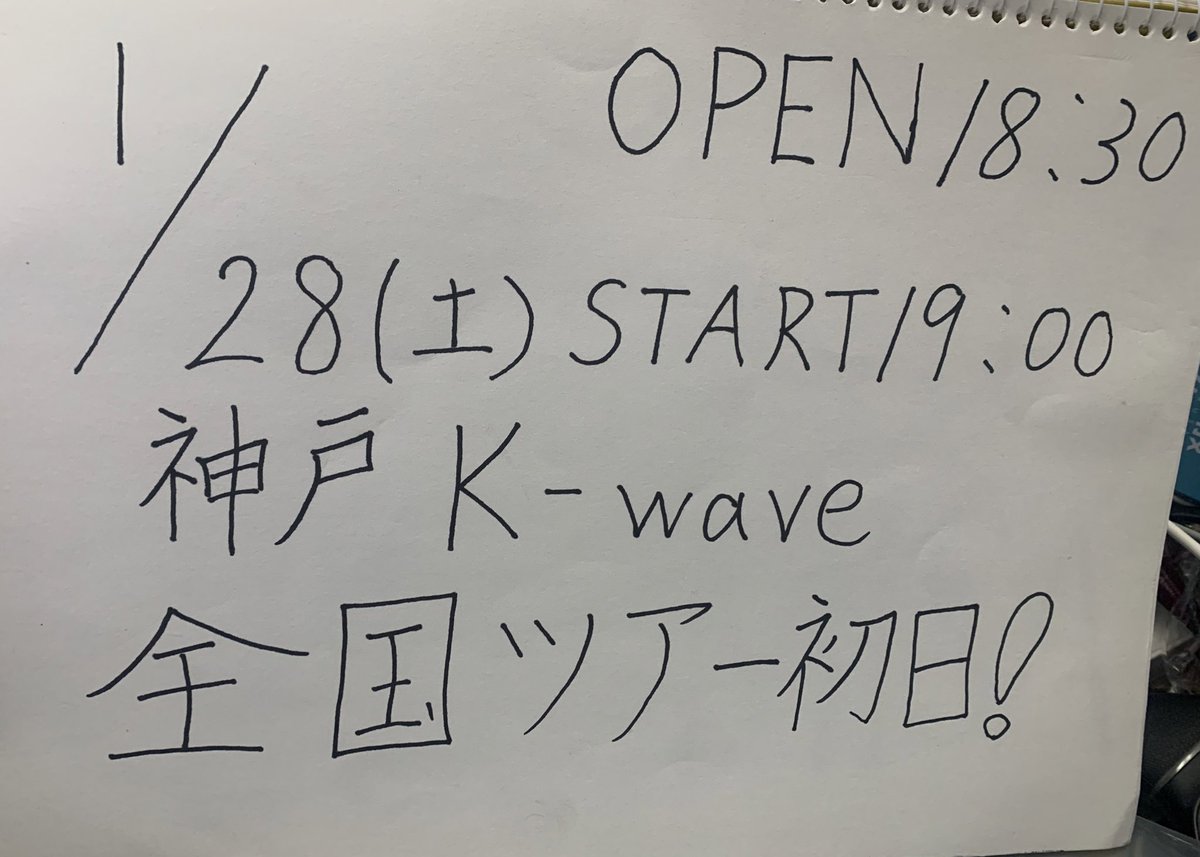 1/ OPEN 18:30
28(土) START 19:00
神戸 K-wave
全国ツアー初日!